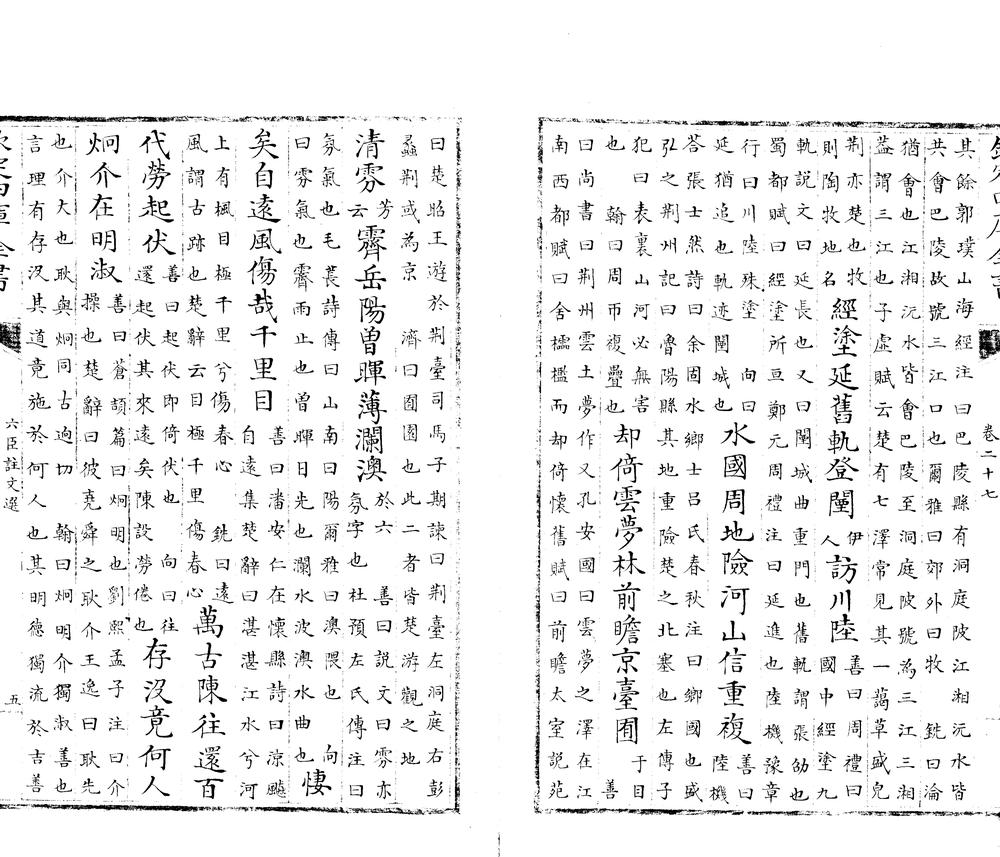 卷二十七
其餘郭璞山海經注曰巴陵縣有洞庭陂江湘沅水皆
共會巴陵故號三江口也爾雅曰郊外曰牧 銑曰淪
猶會也江湘沅水皆會巴陵至洞庭陂號為三江三湘
蓋謂三江也子虛賦云楚有七澤常見其一藹草盛皃
荆亦楚也牧則陶牧地名經塗延舊軌登闉伊人訪川陸善曰周禮曰國中經塗九
軌說文曰延長也又曰闉城曲重門也舊軌謂張劭也
蜀都賦曰經塗所亘鄭元周禮注曰延進也陸機豫章
行曰川陸殊塗 向曰延猶追也軌迹闉城也水國周地險河山信重複善曰陸機
荅張士然詩曰余固水鄉士吕氏春秋注曰鄉國也盛
弘之荆州記曰魯陽縣其地重險楚之北塞也左傳子
犯曰表裏山河必無害也 翰曰周帀複疊也却倚雲夢林前瞻京臺囿于目善
曰尚書曰荆州雲土夢作乂孔安國曰雲夢之澤在江
南西都賦曰舍櫺檻而却倚懷舊賦曰前瞻太室說苑
曰楚昭王遊於荆臺司馬子期諫曰荆臺左洞庭右彭
蠡荆或為京 濟曰園囿也此二者皆楚游觀之地
清雰芳云霽岳陽曾暉薄瀾澳於六 善曰說文曰雰亦氛字也杜預左氏傳注曰
氛氣也毛萇詩傳曰山南曰陽爾雅曰澳隈也 向曰雰氣也霽雨止也曾暉日光也瀾水波澳水曲也悽
矣自遠風傷哉千里目善曰潘安仁在懷縣詩曰涼飈自遠集楚辭曰湛湛江水兮河
上有楓目極千里兮傷春心 銑曰遠風謂古跡也楚辭云目極千里傷春心萬古陳往還百
代勞起伏善曰起伏即倚伏也 向曰往還起伏其來遠矣陳設勞倦也存没竟何人
炯介在明淑善曰蒼頡篇曰炯明也劉熙孟子注曰介操也楚辭曰彼堯舜之耿介王逸曰耿先
也介大也耿與炯同古迥切 翰曰炯明介獨淑善也
言理有存没其道竟施於何人也其明德獨流於古善
六臣註文選
五